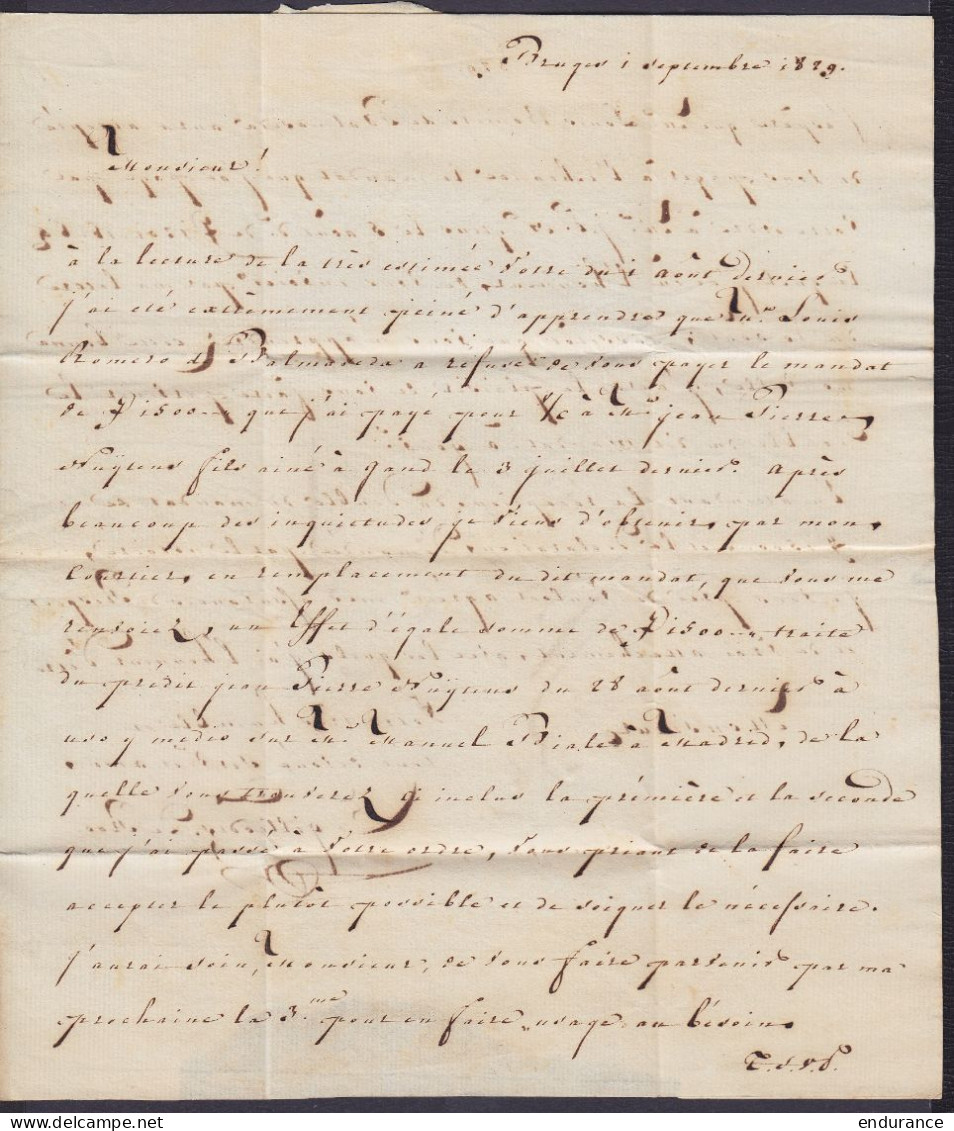 Bruges 1 septembre 1829.
Monsieur!
à la lecture de la très estimée vôtre du 1 août dernier
j'ai été extrêmement peiné d'apprendre que Mr. Louis
Romero de Valmaseda a refusé de vous payer le mandat
de P 1500 que j'ai payé pour V/C à Mr jean Pierre
Nuÿtens fils ainé à gand le 3 juillet dernier. après
beaucoup des inquietudes je viens d'obtenir, par mon
Courtier, en remplacement du dit mandat, que vous me
renvoiez, un Effet d'égale somme de P 1500 traite
du prédit jean Pierre Nuÿtens du 28 août dernier à
uso y medio sur Mr Manuel Viale à Madrid, de la
quelle vous trouverez ci inclus la prémière et la seconde
que j'ai passé à vôtre ordre, vous priant de la faire
accepter le plutôt possible et de soigner le nécessaire.
j'aurai soin, Monsieur, de vous faire parvenir par ma
prochaine la 3.me pour en faire usage au bésoin.
T.S.V.P.
endurance
delcampe.net